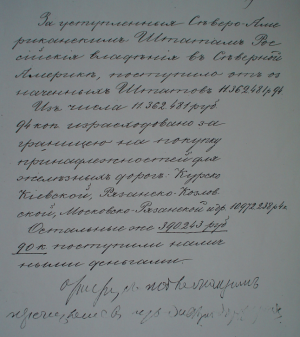 За уступленныя Сѣверо-Аме
риканскимъ Штатамъ Рос
сійскія владѣнія въ Сѣверной
Америкѣ, поступило отъ оз
наченныхъ Штатовъ 11.362.481 р. 94
Изъ числа 11.362.481 руб.
94 коп. израсходовано за
границею на покупку
принадлежностей для
желѣзныхъ дорогъ: Курско
Кіевской, Рязанско-Козлов
ской, Московско-Рязанской и др. 10.972.238 р. 4 к.
Остальные же 390.243 руб.
90 к. поступили налич
ными деньгами.